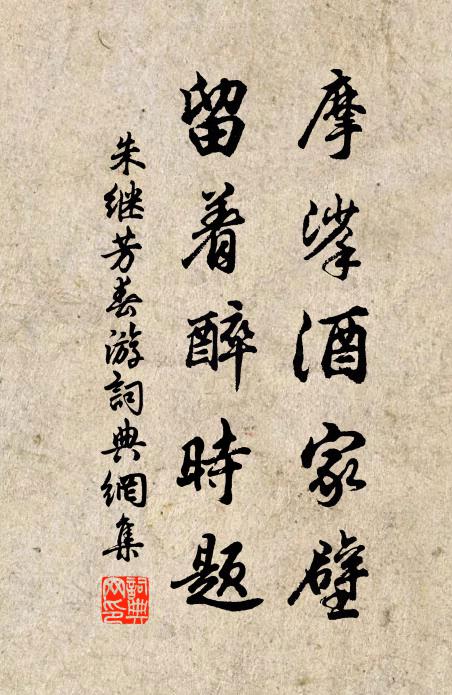 摩挲酒家壁
留着醉时题
朱继芳春游词典網集
词典
网印